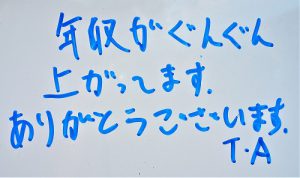 年収がぐんぐん
上がってます.
ありがとうございます.
T・A